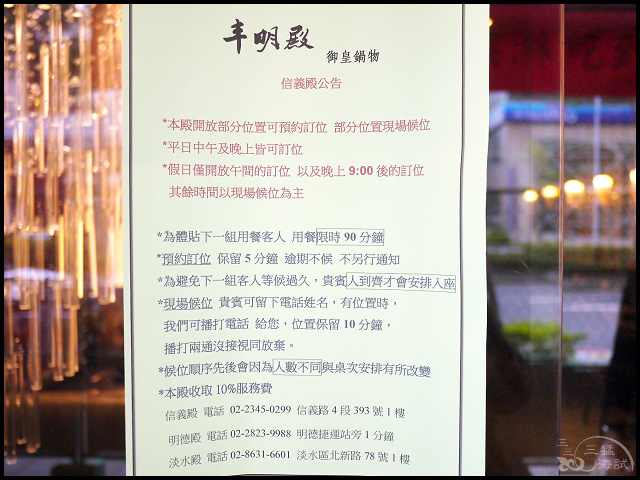 丰明殿
御皇鍋物
信義殿公告
*本殿開放部分位置可預約訂位 部分位置現場候位
*平日中午及晚上皆可訂位
*假日僅開放午間的訂位 以及晚上 9:00 後的訂位
其餘時間以現場候位為主
*為體貼下一組用餐客人 用餐限時 90 分鐘
*預約訂位 保留 5 分鐘 逾期不候 不另行通知
*為避免下一組客人等候過久，貴賓人到齊才會安排入座
*現場候位 貴賓可留下電話姓名，有位置時，
我們可播打電話 給您，位置保留 10 分鐘，
播打兩通沒接視同放棄。
*候位順序先後會因為人數不同與桌次安排有所改變
*本殿收取 10%服務費
信義殿 電話 02-2345-0299 信義路 4 段 393 號 1 樓
明德殿 電話 02-2823-9988 明德捷運站旁 1 分鐘
淡水殿 電話 02-8631-6601 淡水區北新路 78 號 1 樓